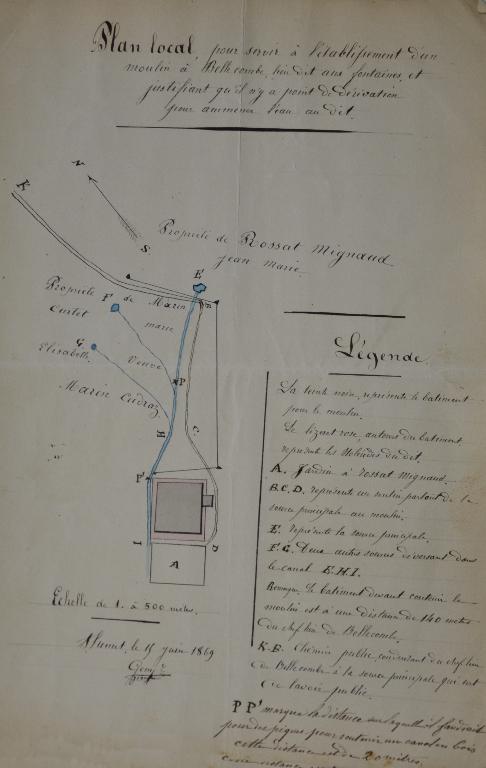 Plan local, pour servir à l'établissement d'un
moulin à Bellecombe, lieu dit aux fontaines, et
justifiant qu'il n'y a point de dérivation
pour ammener l'eau au dit.
K
N
S.
Propriété de Rossat Mignaud
Jean marie.
E
B
Propriété de Marin
Curtet marie
F
G
Elisabeth veuve
P
Marin Cudraz
H
C.
P'
I
D
A
Légende.
La teinte noire, représente le batiment
pour le moulin.
Le lizeret rose, autour du batiment
représente les du dit.
A. Jardin à Rossat Mignaud.
B.C.D. représente un partant de la
source principale au moulin.
E. représente la source principale.
F.G. Deux autres sources déversant dans
le canal E.H.I.
Remarque. Le batiment devant contenir le
moulin est à une distance de 140 metres
du chef lieu de Bellecombe.
K.B. Chemin public, conduisant du chef lieu
de Bellecombe à la source principale qui est
de lavoir public.
P P' marque la distance sur laquelle il faudrait
pour soutenir un canal en bois
cette distance est de 20 mètres.
Echelle de 1. à 500 metres.
le 15 juin 1869